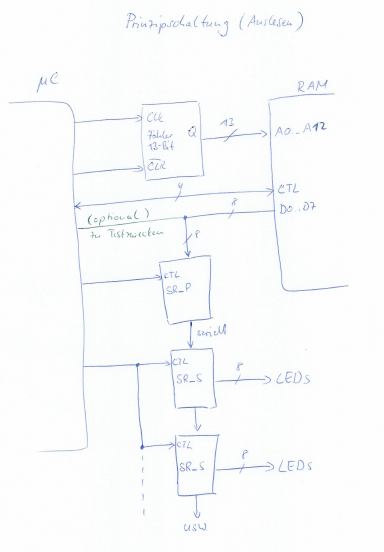 Prinzipschaltung (Auslesen)
µC
RAM
CLK
Zähler
13-Bit
Q
CLR
13
A0..A12
4
CTL
(optional)
zu Testzwecken
8
D0..D7
8
CTL
SR_P
seriell
CTL
SR_S
8
LEDs
CTL
SR_S
8
LEDs
usw